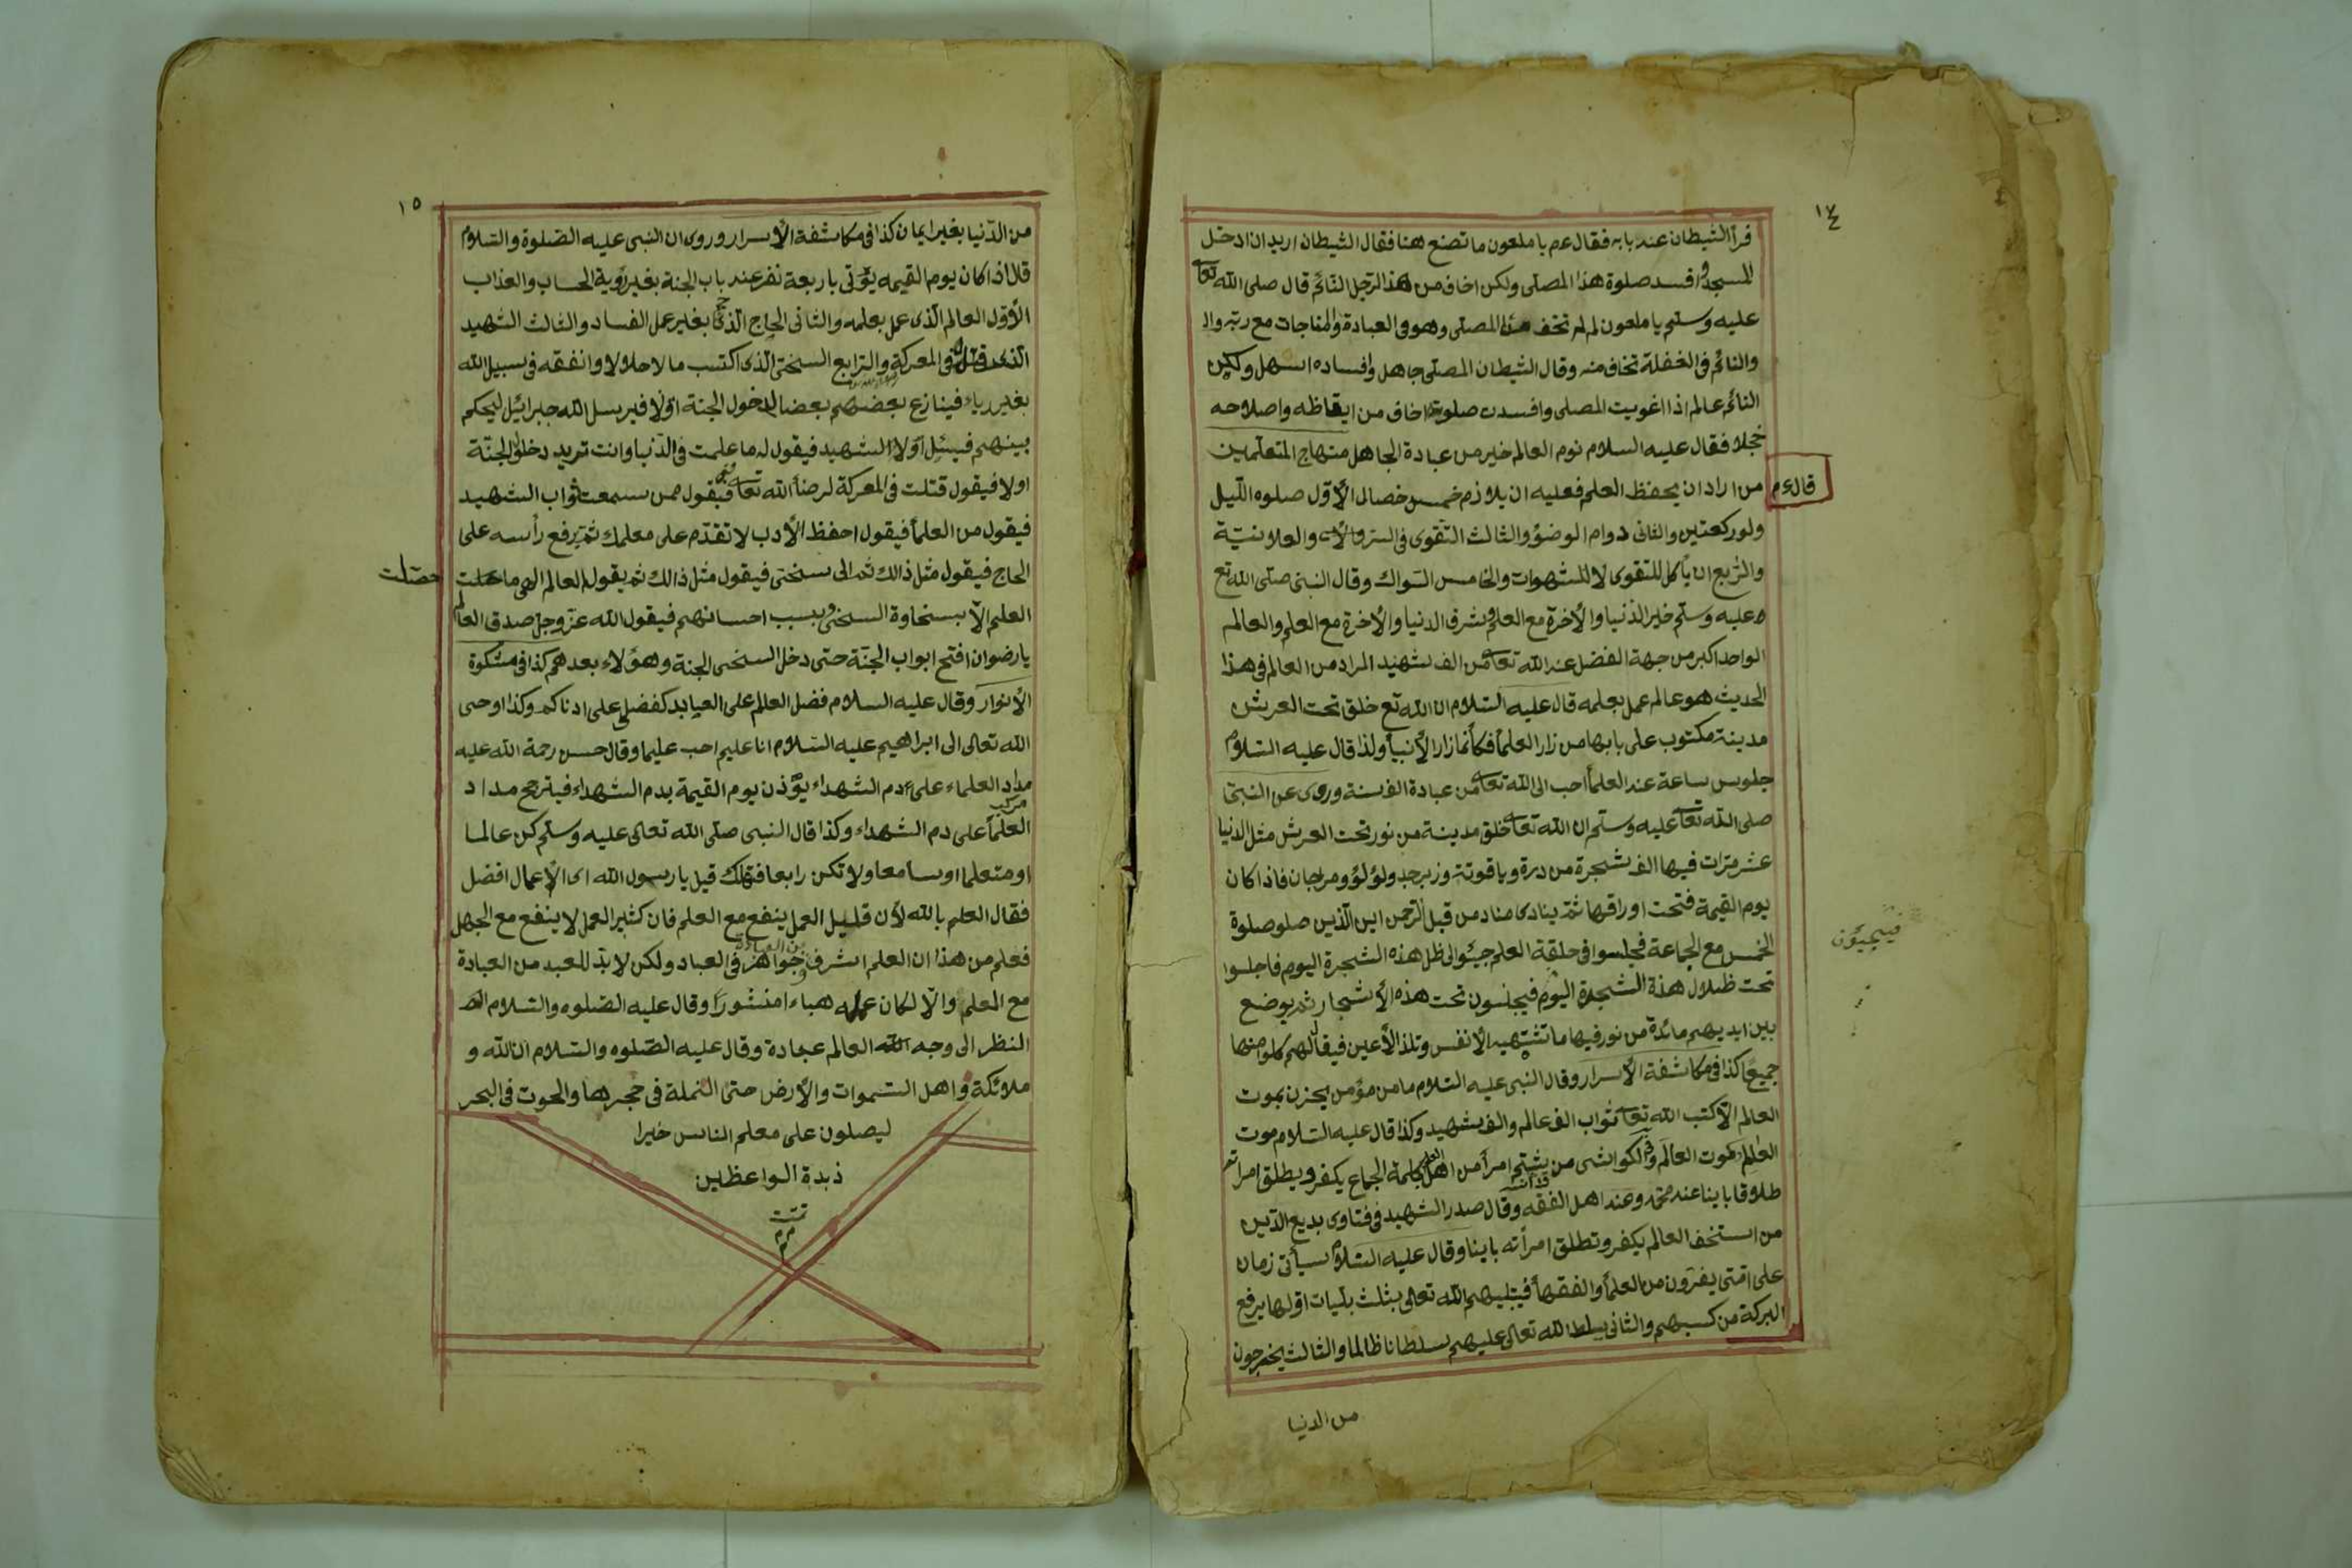 ١٤
فرأ الشيطان عند بابه فقال عم يا ملعون ما تصنع هنا فقال الشيطان اريد ان ادخل
المسجد وافسد صلوة هذا المصلى ولكن اخاف من هذا الرجل النائم قال صلى الله تعا
عليه وسلم يا ملعون لم لم تخف من المصلى وهو فى العبادة والمناجات مع ربه
والنائم فى الغفلة تخاف منه وقال الشيطان المصلى جاهل وافساده اسهل ولكن
النائم عالم اذا اغويت المصلى وافسدت صلوته اخاف من ايقاظه واصلاحه
خجلا فقال عليه السلام نوم العالم خير من عبادة الجاهل منهاج المتعلمين
قال عم
من اراد ان يحفظ العلم فعليه ان يلازم خمس خصال الأوّل صلوه اللّيل
ولو ركعتين والثانى دوام الوضوُ والثالث التّقوى فى السرّ والعلانيّة
والرّبع ان يأكل للتقوى لا للشهوات والخامس السّواك وقال النبى صلّى الله تع
عليه وسلّم خير الدّنيا والأخرة مع العلم وشرف الدنيا والأخرة مع العلم والعالم
الواحد اكبر من جهة الفضل عند الله تعا من الف شهيد المراد من العالم فى هذا
الحديث هو عالم عمل بعلمه قال عليه السّلام ان الله تع خلق تحت العرش
مدينة مكتوب على بابها من زار العلمأ فكأنما زار الأنبيأ ولذا قال عليه السّلام
جلوس ساعة عند العلمأ احب الى الله تعا من عبادة الف سنة وروى عن النبى
صلى الله تعا عليه وسلّم ان الله تعا خلق مدينة من نور تحت العرش مثل الدنيا
عشر مرّات فيها الف شجرة من درة وياقوتة وزبرجد ولؤلؤ ومرجان فاذا كان
يوم القيمة فتحت اوراقها ثمّ ينادى مناد من قبل الرّحمن اين الّذين صلو صلوة
الخمس مع الجماعة فجلسوا فى حلقة العلم جيئوا لى ظل هذه الشجرة اليوم فاجلسوا
فيجيؤن
تحت ظلال هذة الشجرة اليوم فيجلسون تحت هذه الأشجار ثم يوضع
بين ايديهم مائدة من نور فيها ما تشتهيه الأنفس وتلذ الأعين فيقال لهم كلوا منها
جميعًا كذا فى مكاشفة الأسرار وقال النبى عليه السّلام ما من مؤمن يحزن بموت
العالم الاّ كتب الله تعا ثواب الف عالم والف شهيد وكذا قال عليه السّلام موت
العالم كموت العالم من يشتم امرأ من اهل العلم بكلمة الجماع يكفر ويطلق امراته
طلاقا باينا عند محمّد وعند اهل الفقه وقال صدر الشهيد فى فتاوى بديع الدّين
من استخف العالم يكفر وتطلق امرأته باينا وقال عليه السّلام سيأتى زمان
على امّتى يفرّون من العلمأ والفقهأ فيبتليهم الله تعالى بثلث بليّات اوّلها يرفع
البركة من كسبهم والثانى يسلط الله تعالى عليهم سلطانا ظالما والثالث يخرجون
من الدنيا
١٥
من الدّنيا بغير ايمان كذا فى مكاشفة الأسرار وروى ان النبى عليه الصّلوة والسّلام
قال اذا كان يوم القيمه يؤتى باربعة نفر عند باب الجنة بغير رؤية الحساب والعذاب
الأوّل العالم الّذى عمل بعلمه والثانى الحاج الّذى حج بغير عمل الفساد والثالث الشّهيد
الّذى قتل فى المعركة والرّابع السخىّ الّذى اكتسب مالا حلالا وانفقه فى سبيل الله
بغير رياء فينازع بعضهم بعضا لدخول الجنة اوّلا فيرسل الله جبرائيل ليحكم
بينهم فيسئل اوّلا الشهيد فيقول له ما علمت فى الدّنيا وانت تريد دخل الجنّة
اولا فيقول قتلت فى المعركة لرضأ الله تعا فيقول ممن سمعت ثواب الشهيد
فيقول من العلمأ فيقول احفظ الأدب لا تقدّم على معلمك ثمّ يرفع رأسه على
الحاج فيقول مثل ذالك ثم الى سخى فيقول مثل ذالك ثم يقول العالم الهى ما حصلت
حصّلت
العلم الاّ بسخاوة السخىّ وبسبب احسانهم فيقول الله عزّ وجلّ صدق العالم
يا رضوان افتح ابواب الجنّة حتى دخل السخى الجنة وهؤلاء بعدهم كذا فى مشكوة
الأنوار وقال عليه السلام فضل العالم على العابد كفضلى على ادناكم وكذا اوحى
الله تعالى الى ابراهيم عليه السّلام انا عليم احب عليما وقال حسن رحمة الله عليه
مداد العلماء على دم الشهداء يوّذن يوم القيمة بدم الشهداء فيترجح مداد
مركب
العلمأ على دم الشهداء وكذا قال النبى صلّى الله تعالى عليه وسلّم كن عالما
او متعلما او سامعا ولا تكن رابعا فتهلك قيل يا رسول الله اى الأعمال افضل
فقال العلم بالله لأن قليل العمل ينفع مع العلم فان كثير العمل لا ينفع مع الجهل
فعلم من هذا ان العلم اشرف جواهر فى العباد ولكن لا بدّ للعبد من العبادة
مع العلم والاّ لكان علمه هباء منثورًا وقال عليه الصّلوه والسّلام
النظر الى وجه العالم عبادة وقال عليه الصّلوه والسّلام ان الله و
ملائكة واهل السّموات والأرض حتى النملة فى حجرها والحوت فى البحر
ليصلون على معلم الناس خيرا
ذبدة الواعظين
تمّت